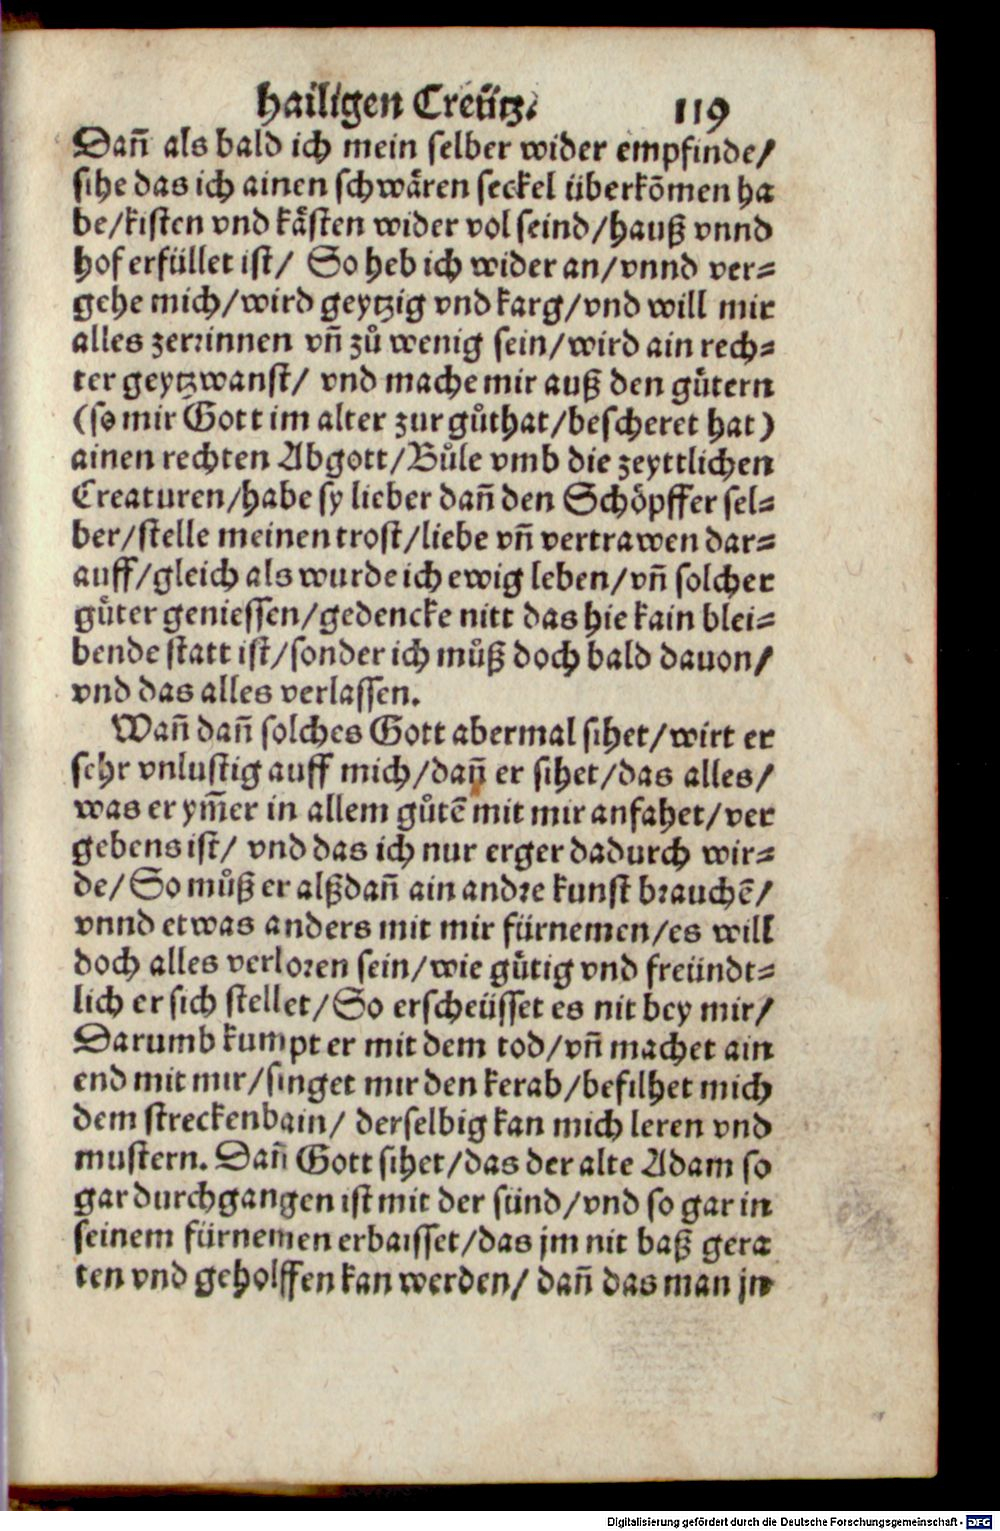 hailigen Creütz. 119
Dañ als bald ich mein selber wider empfinde/
sihe das ich ainen schwären seckel überkõmen ha
be/kisten vnd kästen wider vol seind/hauß vnnd
hof erfüllet ist/ So heb ich wider an/vnnd ver=
gehe mich/wird geytzig vnd karg/vnd will mir
alles zerrinnen vñ zů wenig sein/wird ain rech=
ter geytzwanst/ vnd mache mir auß den gůtern
(so mir Gott im alter zur gůthat/bescheret hat)
ainen rechten Abgott/Bůle vmb die zeyttlichen
Creaturen/habe sy lieber dañ den Schöpffer sel=
ber/stelle meinen trost/liebe vñ vertrawen dar=
auff/gleich als wurde ich ewig leben/vñ solcher
gůter geniessen/gedencke nitt das hie kain blei=
bende statt ist/sonder ich můß doch bald dauon/
vnd das alles verlassen.
Wañ dañ solches Gott abermal sihet/wirt er
sehr vnlustig auff mich/dañ er sihet/das alles/
was er ym̃er in allem gůtẽ mit mir anfahet/ver
gebens ist/ vnd das ich nur erger dadurch wir=
de/So můß er alßdañ ain andre kunst brauchẽ/
vnnd etwas anders mit mir fürnemen/es will
doch alles verloren sein/wie gůtig vnd freündt=
lich er sich stellet/So erscheüsset es nit bey mir/
Darumb kumpt er mit dem tod/vñ machet ain
end mit mir/singet mir den kerab/befilhet mich
dem streckenbain/ derselbig kan mich leren vnd
mustern. Dañ Gott sihet/das der alte Adam so
gar durchgangen ist mit der sünd/vnd so gar in
seinem fürnemen erbaisset/das jm nit baß gera
ten vnd geholffen kan werden/ dañ das man jn
Digitalisierung gefördert durch die Deutsche Forschungsgemeinschaft - DFG